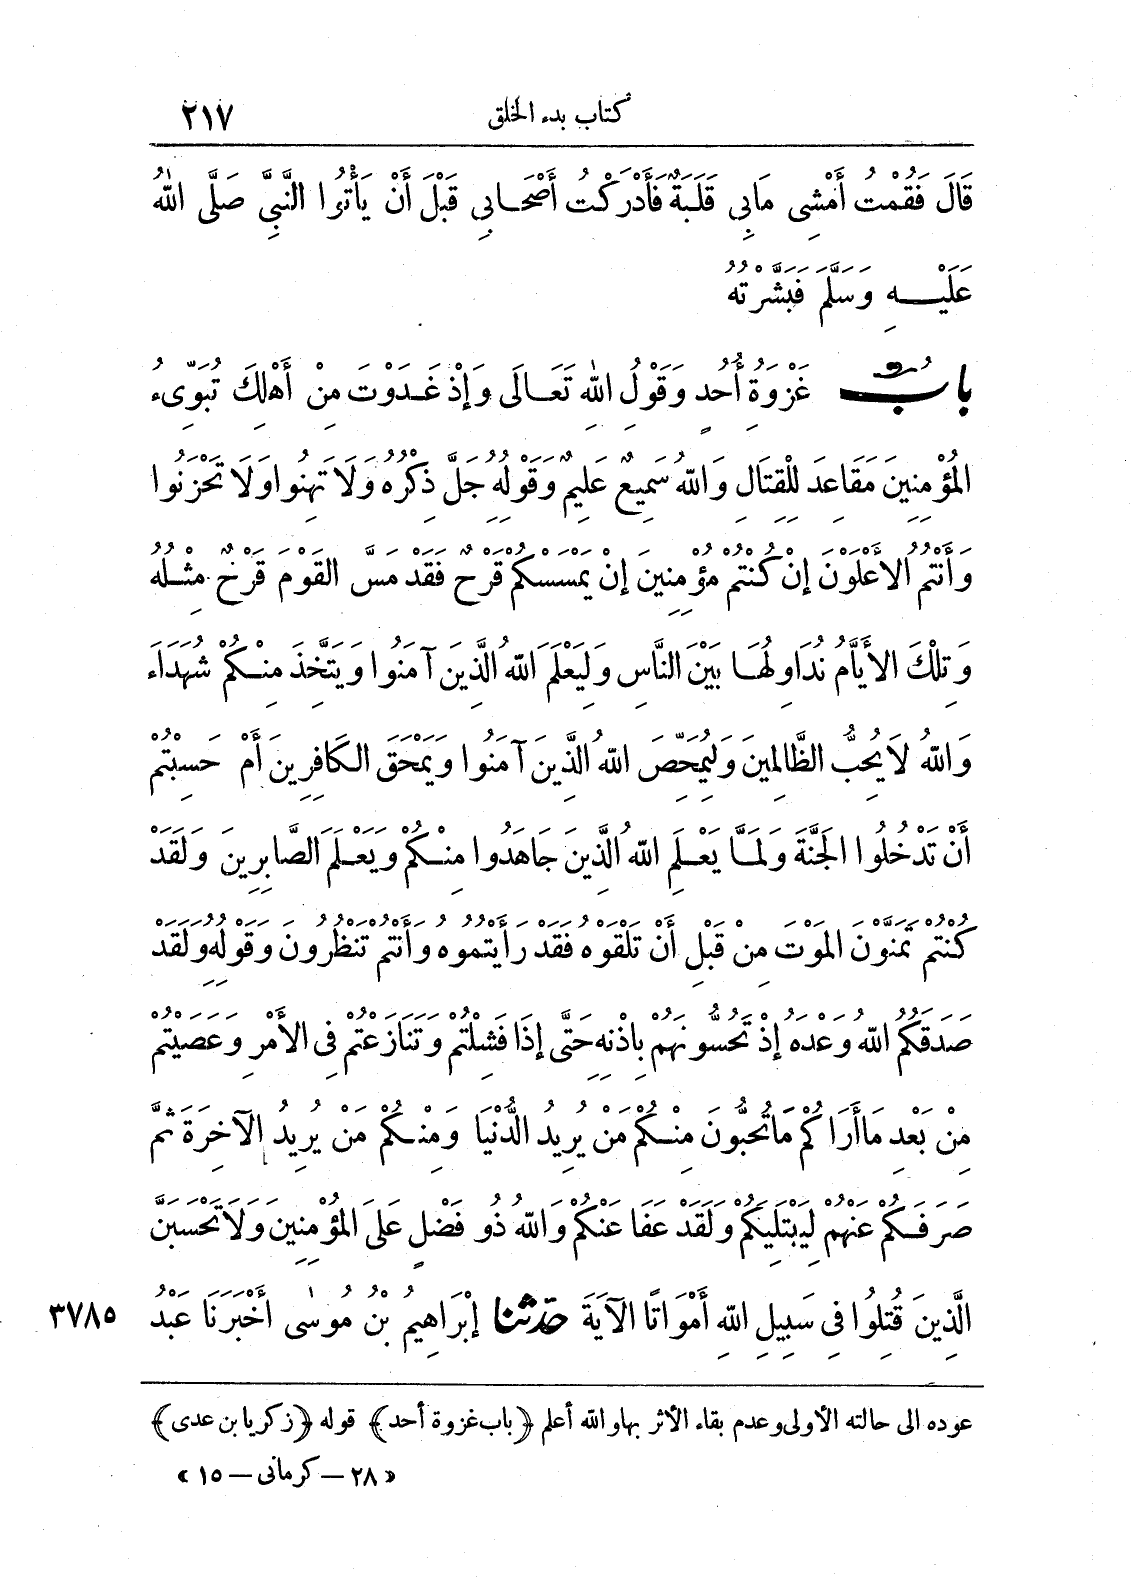 كتاب بدء الخلق ٢١٧
قَالَ فَقُمْتُ أَمْشِى مَابِى قَلَبَةٌ فَأَدْرَكْتُ أَصْحَابِى قَبْلَ أَنْ يَأْتُوا النَّبِىَّ صَلَّى اللهُ
عَلَيْهِ وَسَلَّمَ فَبَشَّرْتُهُ
بَابُ غَزْوَةِ أُحُدٍ وَقَوْلِ اللهِ تَعَالَى وَإِذْ غَدَوْتَ مِنْ أَهْلِكَ تُبَوِّىءُ
المُؤْمِنِينَ مَقَاعِدَ لِلْقِتَالِ وَاللهُ سَمِيعٌ عَلِيمٌ وَقَوْلِهِ جَلَّ ذِكْرُهُ وَلَا تَهِنُوا وَلَا تَحْزَنُوا
وَأَنْتُمُ الأَعْلَوْنَ إِنْ كُنْتُمْ مُؤْمِنِينَ إِنْ يَمْسَسْكُمْ قَرْحٌ فَقَدْ مَسَّ القَوْمَ قَرْحٌ مِثْلُهُ
وَتِلْكَ الأَيَّامُ نُدَاوِلُهَا بَيْنَ النَّاسِ وَلِيَعْلَمَ اللهُ الَّذِينَ آمَنُوا وَيَتَّخِذَ مِنْكُمْ شُهَدَاءَ
وَاللهُ لَا يُحِبُّ الظَّالِمِينَ وَلِيُمَحِّصَ اللهُ الَّذِينَ آمَنُوا وَيَمْحَقَ الكَافِرِينَ أَمْ حَسِبْتُمْ
أَنْ تَدْخُلُوا الجَنَّةَ وَلَمَّا يَعْلَمِ اللهُ الَّذِينَ جَاهَدُوا مِنْكُمْ وَيَعْلَمَ الصَّابِرِينَ وَلَقَدْ
كُنْتُمْ تَمَنَّوْنَ المَوْتَ مِنْ قَبْلِ أَنْ تَلْقَوْهُ فَقَدْ رَأَيْتُمُوهُ وَأَنْتُمْ تَنْظُرُونَ وَقَوْلِهِ وَلَقَدْ
صَدَقَكُمُ اللهُ وَعْدَهُ إِذْ تَحُسُّونَهُمْ بِإِذْنِهِ حَتَّى إِذَا فَشِلْتُمْ وَتَنَازَعْتُمْ فِى الأَمْرِ وَعَصَيْتُمْ
مِنْ بَعْدِ مَا أَرَاكُمْ مَا تُحِبُّونَ مِنْكُمْ مَنْ يُرِيدُ الدُّنْيَا وَمِنْكُمْ مَنْ يُرِيدُ الآخِرَةَ ثُمَّ
صَرَفَكُمْ عَنْهُمْ لِيَبْتَلِيَكُمْ وَلَقَدْ عَفَا عَنْكُمْ وَاللهُ ذُو فَضْلٍ عَلَى المُؤْمِنِينَ وَلَا تَحْسَبَنَّ
الَّذِينَ قُتِلُوا فِى سَبِيلِ اللهِ أَمْوَاتًا الآيَةَ حَدَّثَنَا إِبْرَاهِيمُ بْنُ مُوسَى أَخْبَرَنَا عَبْدُ ٣٧٨٥
عوده الى حالته الأولى وعدم بقاء الأثر بها والله أعلم ﴿باب غزوة أحد﴾ قوله ﴿زكريا بن عدى﴾
« ٢٨ – كرمانى – ١٥ »